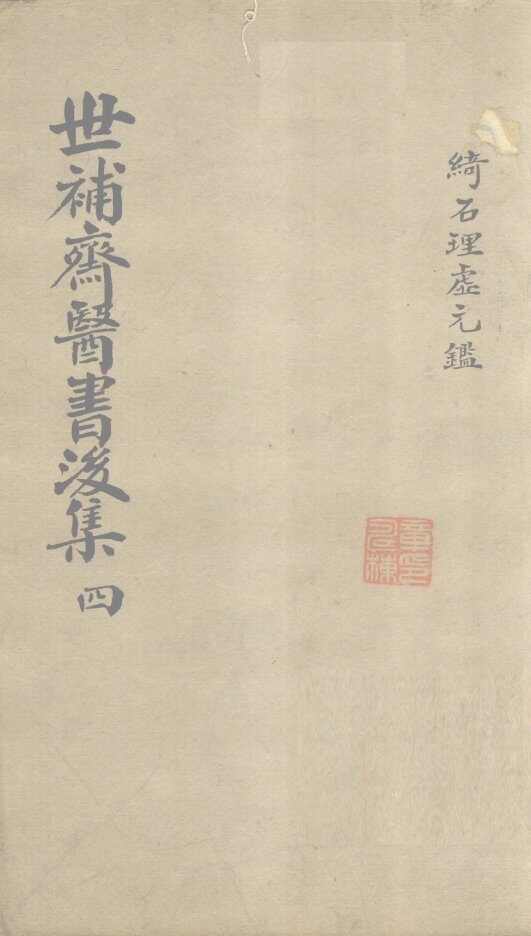 綺石理虛元鑑
世補齋醫書後集 四